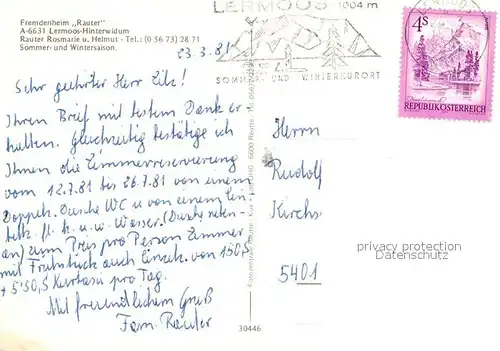 Fremdenheim „Rauter"
A-6631 Lermoos-Hinterwidum
Rauter Rosmarie u. Helmut - Tel.: (0 56 73) 28 71
Sommer- und Wintersaison.
23.3.81
LERMOOS 1004 m
SOMMER UND WINTERKURORT
4S
REPUBLIK ÖSTERREICH
Sehr geehrter Herr
Ihren Brief mit bestem Dank er-
halten. Gleichzeitig bestätige ich
Ihnen die Zimmerreservierung
vom 12.7.81 bis 26.7.81 von einem
Doppelz. Dusche WC u von einem Ein-
bettz. fl. k. u. w. Wasser. (Dusche neben-
an) zum Preis pro Person Zimmer
mit Frühstück auch Einzelz. von 150,S
+ 5'50,S Kurtaxe pro Tag.
Mit freundlichem Gruß
Fam. Rauter
Herrn
Rudolf
Kirchs
5401
privacy protection
PRIVACY PROTECTION
30446